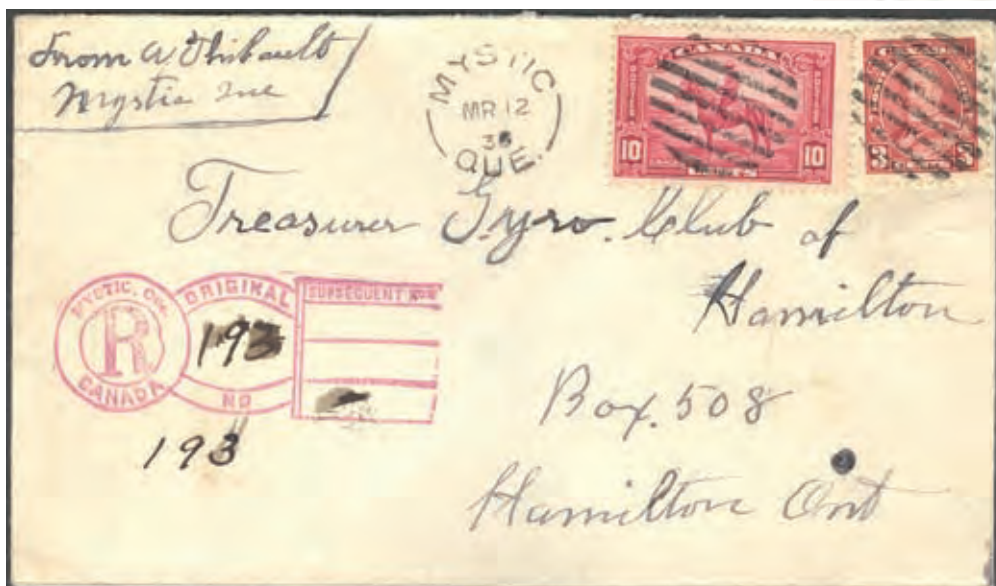 From A Thibault
Mystic Que
MYSTIC
MR 12
36
QUE.
CANADA
10 10
3
Treasurer Gyro. Club of
Hamilton
Box. 508
Hamilton Ont
MYSTIC, QUE.
R
CANADA
ORIGINAL
193
NO
SUBSEQUENT NOS
193